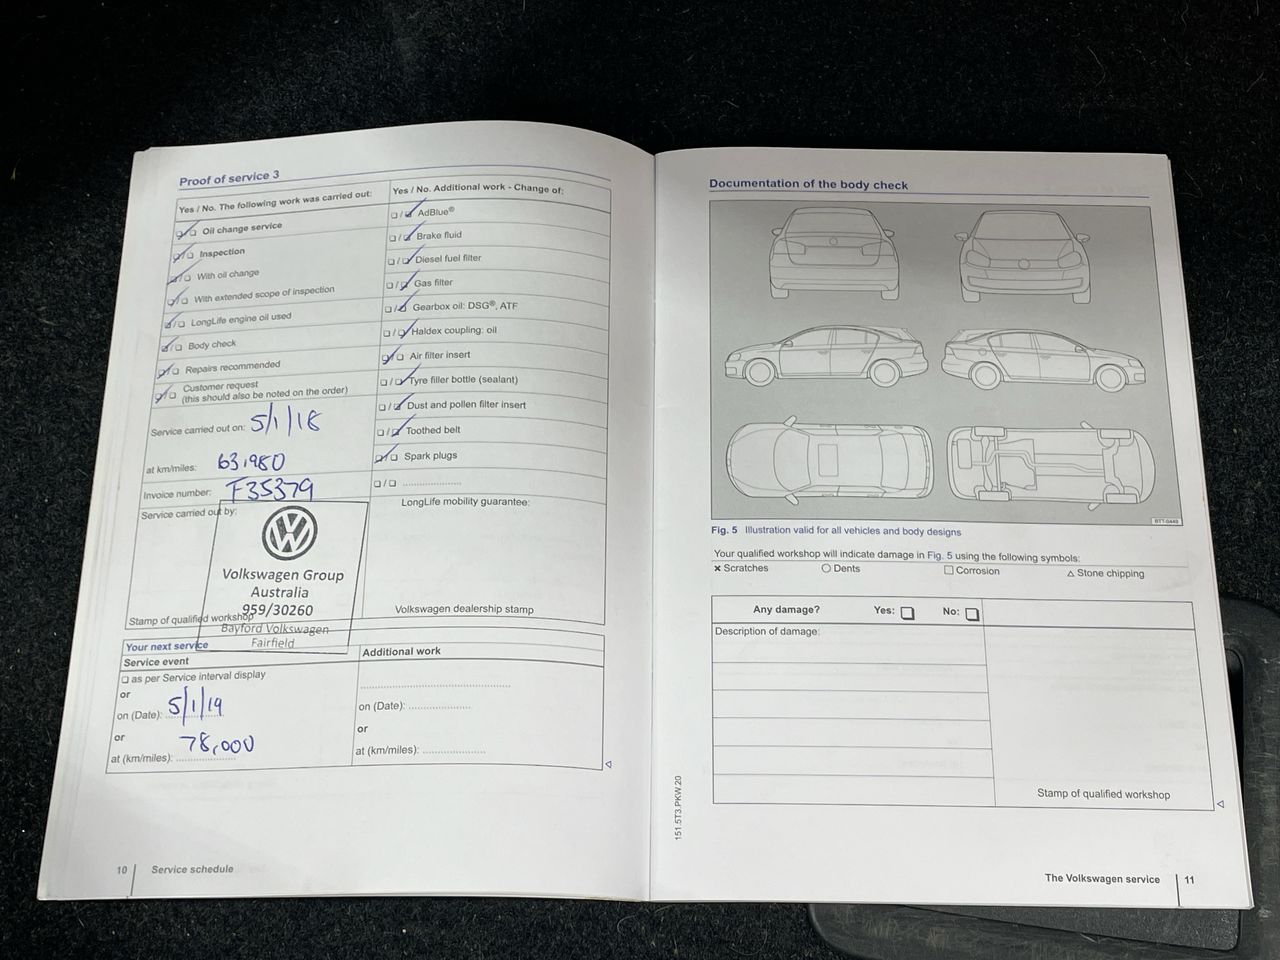 Proof of service 3
Yes / No. The following work was carried out:
Oil change service
Inspection
With oil change
With extended scope of inspection
LongLife engine oil used
Body check
Repairs recommended
Customer request
(this should also be noted on the order)
Service carried out on: 5/1/18
at km/miles: 63,980
Invoice number: F35379
Service carried out by:
Volkswagen Group
Australia
959/30260
Bayford Volkswagen
Fairfield
Stamp of qualified workshop
Yes / No. Additional work - Change of:
AdBlue®
Brake fluid
Diesel fuel filter
Gas filter
Gearbox oil: DSG®, ATF
Haldex coupling: oil
Air filter insert
Tyre filler bottle (sealant)
Dust and pollen filter insert
Toothed belt
Spark plugs
LongLife mobility guarantee:
Volkswagen dealership stamp
Your next service
Service event
as per Service interval display
or
on (Date): 5/1/19
or
at (km/miles): 78,000
Additional work
on (Date):
or
at (km/miles):
10 Service schedule
Documentation of the body check
BTT-0449
Fig. 5 Illustration valid for all vehicles and body designs
Your qualified workshop will indicate damage in Fig. 5 using the following symbols:
× Scratches ○ Dents □ Corrosion △ Stone chipping
Any damage? Yes: No:
Description of damage:
Stamp of qualified workshop
151.5T3.PKW.20
The Volkswagen service 11